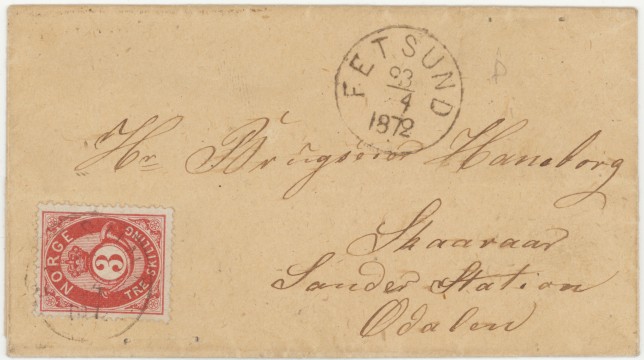 FETSUND
23
4
1872
Hr. Brugseier Haneborg
Skaaraar
Sander Station
Odalen
NORGE
3
TRE SKILLING